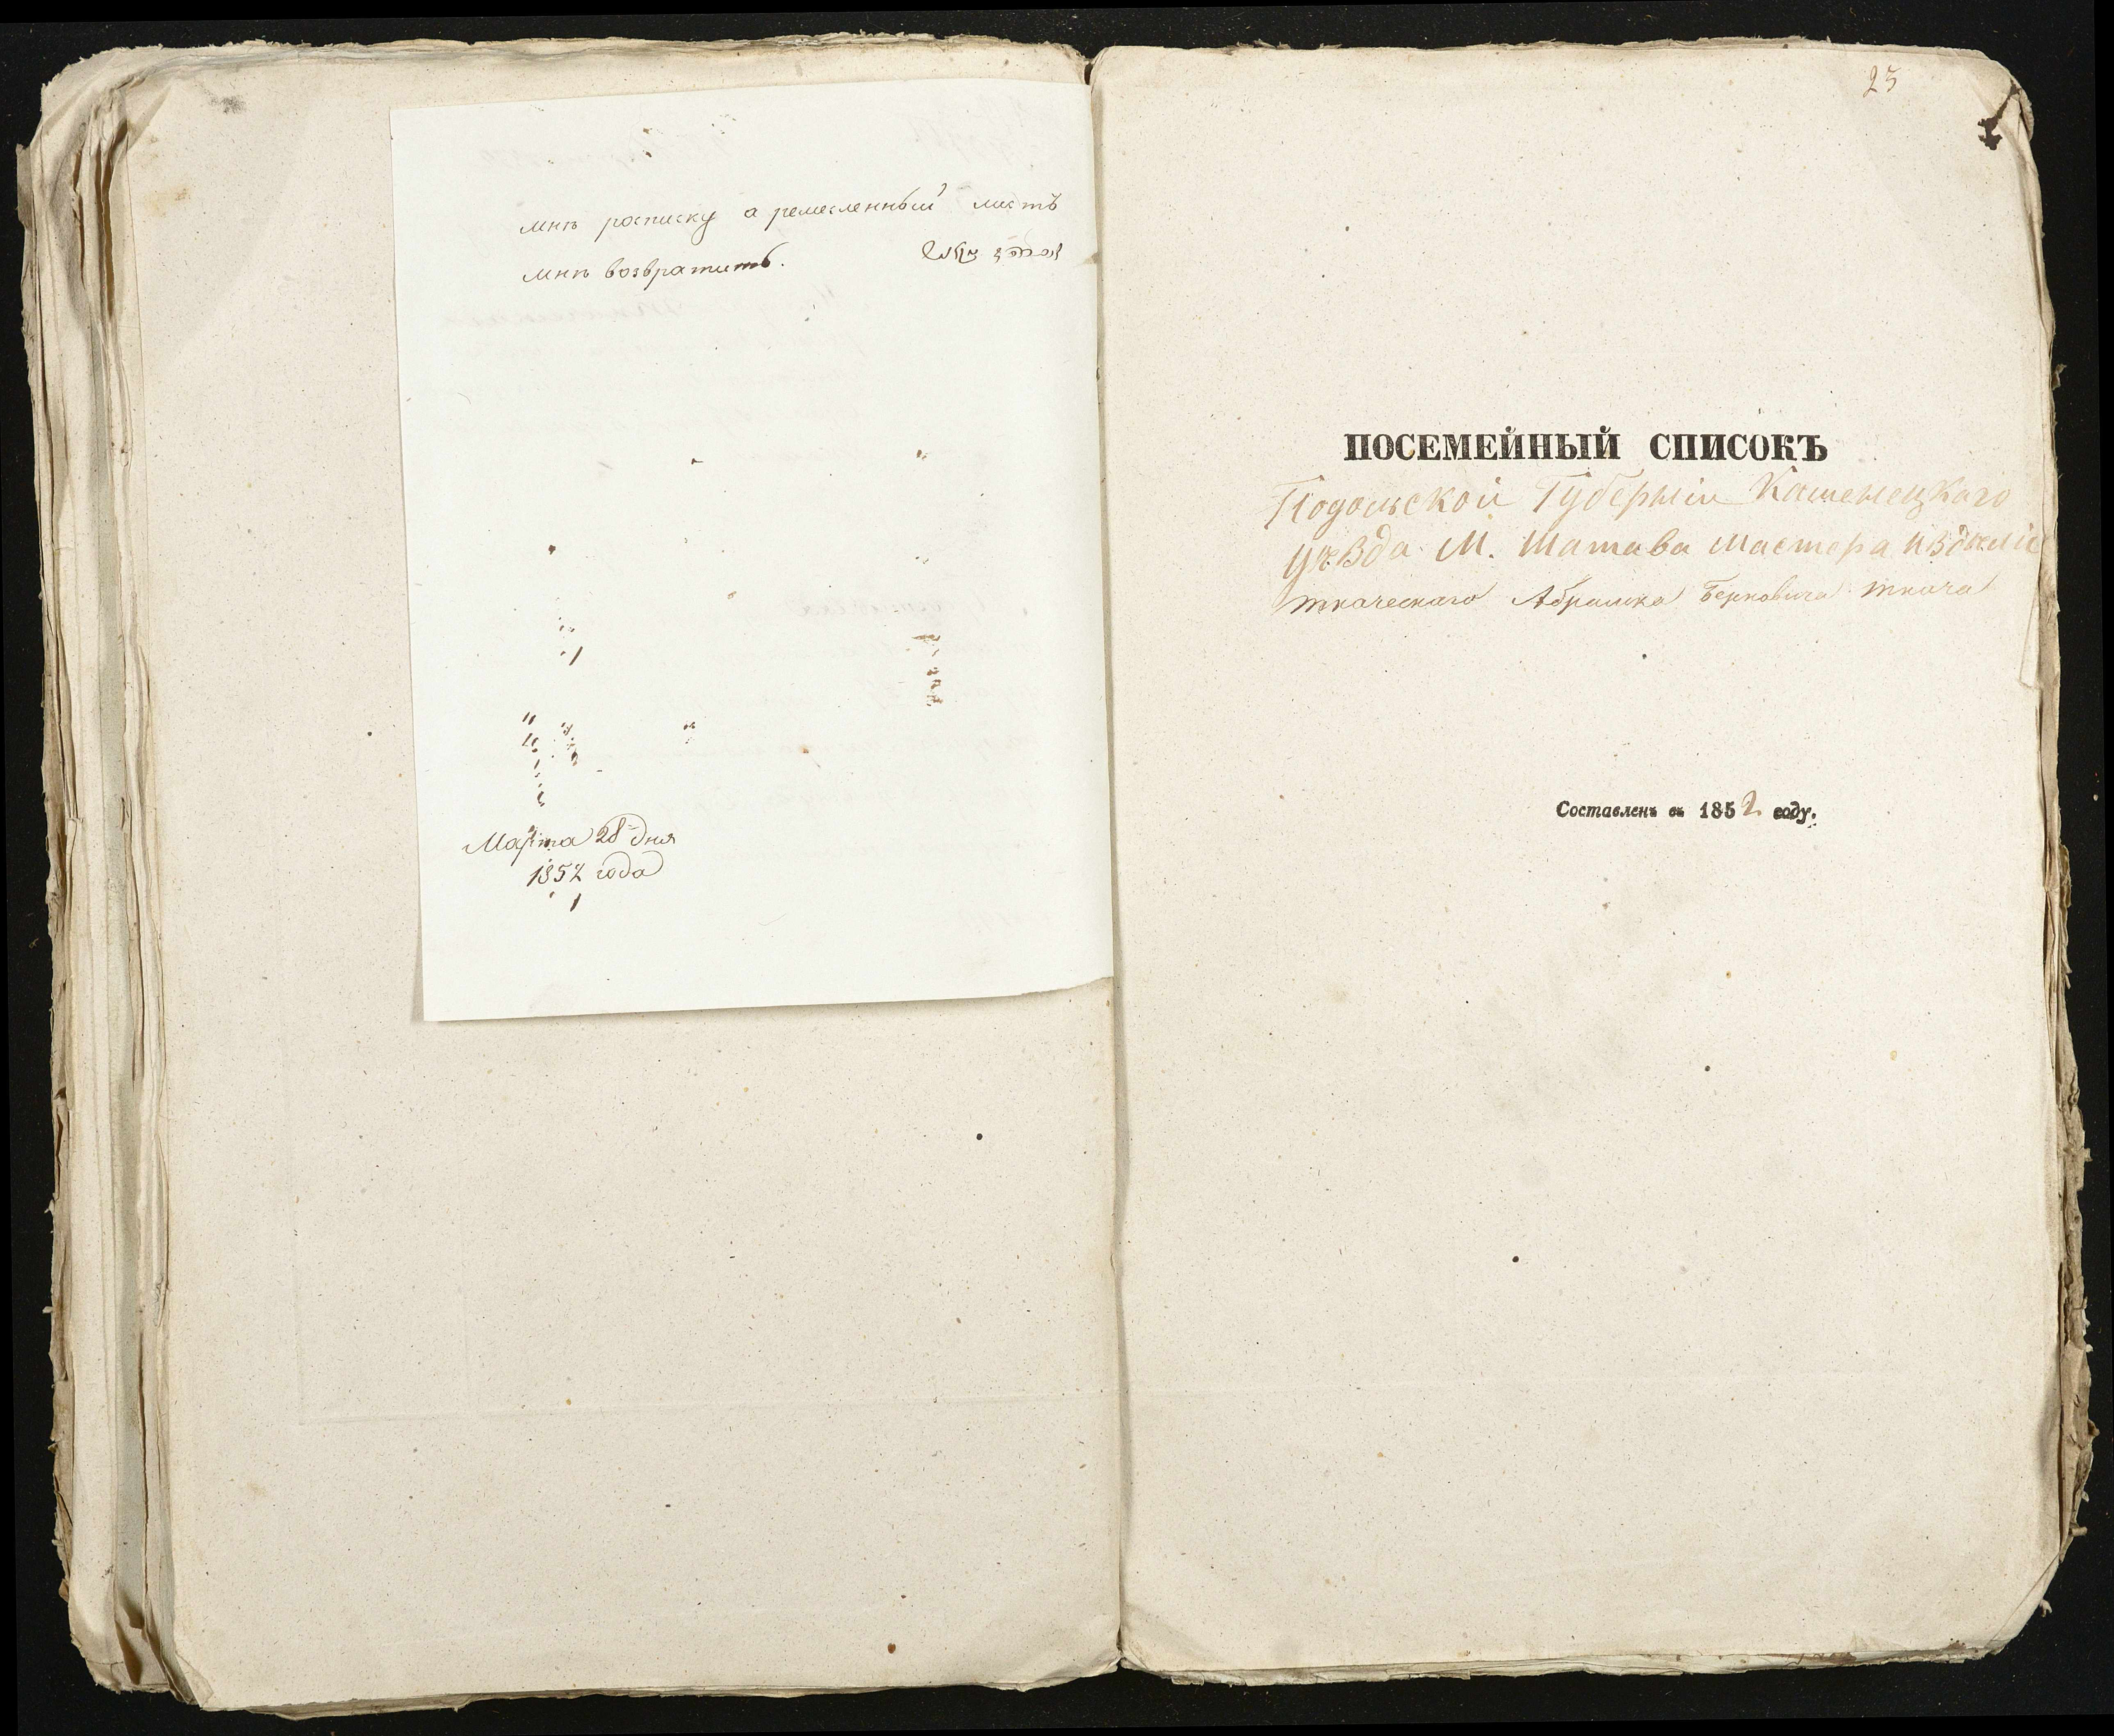 мнѣ росписку а ремесленный листъ
мнѣ возвратить.
Марта 28 дня
1852 года
23
ПОСЕМЕЙНЫЙ СПИСОКЪ
Подольской Губерніи Каменецкаго
уѣзда М. Шатава мастера издѣлій
ткаческаго Абрамка Берковича Ткача
Составленъ въ 1852 году.